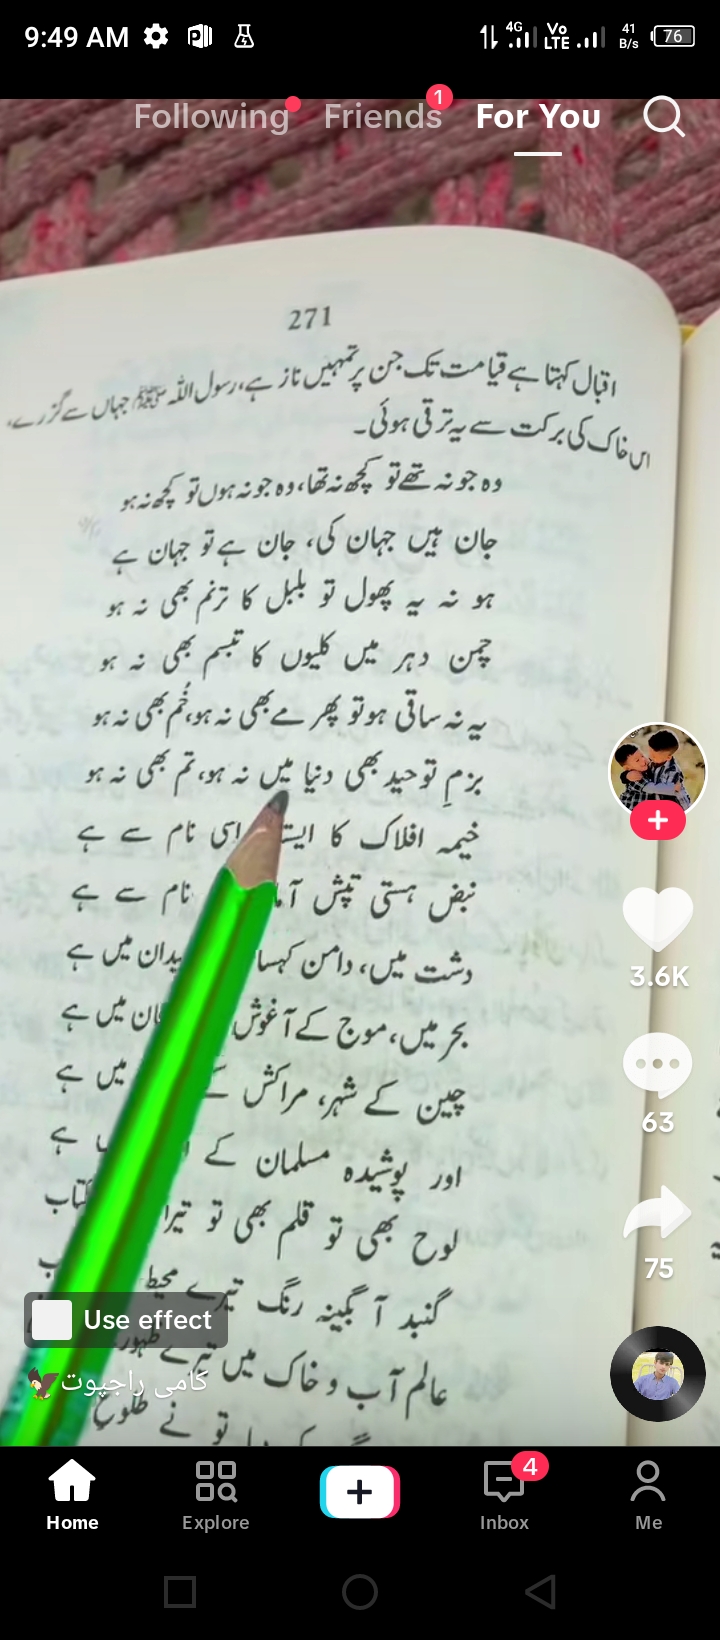 9:49 AM
4G
Vo LTE
41 B/s
76
Following
Friends
1
For You
271
اقبال کہتا ہے قیامت تک جن پر تمہیں ناز ہے، رسول اللہ ﷺ جہاں سے گزرے،
اس خاک کی برکت سے یہ ترقی ہوئی۔
وہ جو نہ تھے تو کچھ نہ تھا، وہ جو نہ ہوں تو کچھ نہ ہو
جان ہیں جہان کی، جان ہے تو جہان ہے
ہو نہ یہ پھول تو بلبل کا ترنم بھی نہ ہو
چمن دہر میں کلیوں کا تبسم بھی نہ ہو
یہ نہ ساقی ہو تو پھر مے بھی نہ ہو، خُم بھی نہ ہو
بزمِ توحید بھی دنیا میں نہ ہو، تم بھی نہ ہو
خیمہ افلاک کا اسی نام سے ہے
نبض ہستی تپش نام سے ہے
دشت میں، دامن میں ہے
بحر میں، موج کے آغوش میں ہے
چین کے شہر، مراکش میں ہے
اور پوشیدہ مسلمان کے ہے
لوح بھی تو قلم بھی تو
گنبد آبگینہ رنگ تیرے محیط
عالم آب و خاک میں تیرے ظہور
تو نے طلوع
3.6K
63
75
Use effect
کامی راجپوت🦅
Home
Explore
4
Inbox
Me